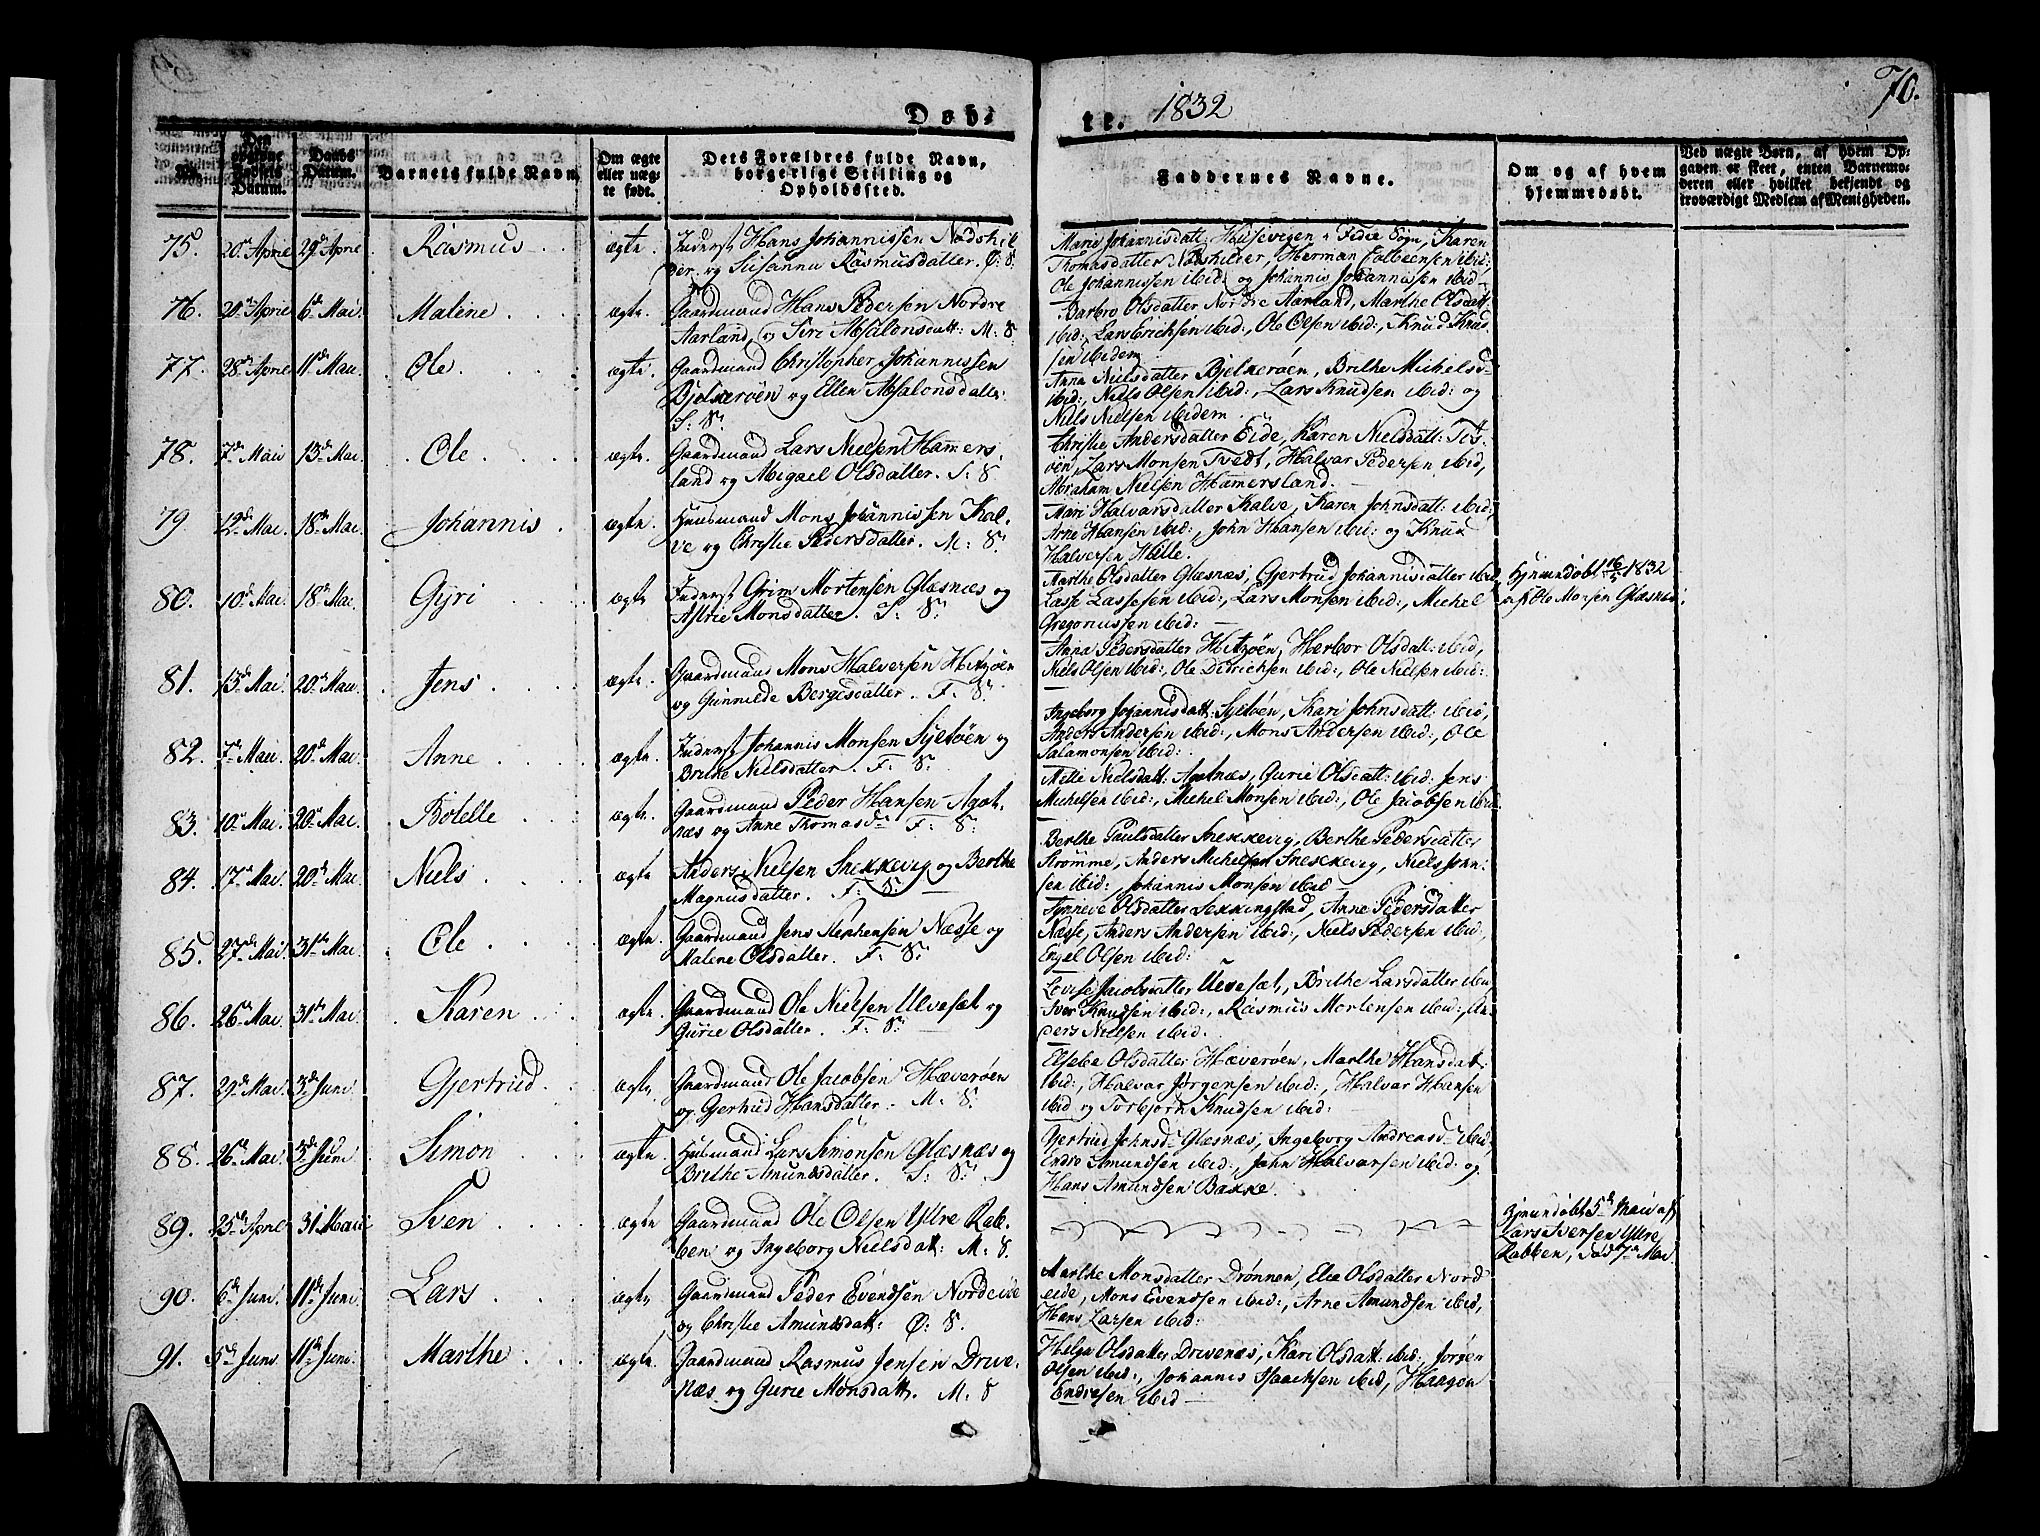 70.
Døbte. 1832
No.
Den opgivne Fødsels Datum.
Daabs Datum.
Barnets fulde Navn.
Om ægte eller uægte født.
Dets Forældres fulde Navn, borgerlige Stilling og Opholdssted.
Faddernes Navne.
Om og af hvem hjemmedøbt.
Ved uægte Børn, af hvem Opgaven er skeet, enten Barnemoderen eller hvilket bekjendt og troværdigt Medlem af Menigheden.
75. 20de April 29de April Rasmus ægte. Inderst Hans Johannissen Nodskil
der, og Susanna Rasmusdatter. Ø: S:
Marie Johannisdatt: Husevigen Fidie Sogn, Karen
Thomasdatter Nodskilder, Herman ibid:
Ole Johannissen ibid: og Johannis Johannissen ibid
76. 20de April 6de Mai Malene ægte. Gaardmand Hans Pedersen Nordre
Aarland, og Siri Absalonsdatt: M: S
Barbro Olsdatter Nordre Aarland, Marthe Olsdatt:
ibid:, Lars Erichsen ibid:, Ole Olsen ibid:, Knud Knud
sen ibidem
77. 28de April 11te Mai Ole. ægte. Gaardmand Christopher Johannissen
Bjelkerøen og Ellen Absalonsdatter.
S: S:
Anna Nielsdatter Bjelkerøen, Brithe Michelsd
ibid:, Niels Olsen ibid:, Lars Knudsen ibid: og
Niels Nielsen ibidem.
78. 7de Mai 13de Mai. Ole. ægte. Gaardmand Lars Nielsen Hamers
land og Abigael Olsdatter. S: S.
Christie Andersdatter Eide, Karen Nielsdatt: Tøs
øen, Lars Monsen Tvedt, Halvar Pedersen ibid,
Abraham Nielsen Hamersland.
79 12de Mai. 18de Mai. Johannis ægte. Huusmand Mons Johannissen Kal
ve og Christie Pedersdatter. M: S.
Mari Halvarsdatter Kalve, Karen Johnsdatt: ibid,
Arne Hansen ibid:, John Hansen ibid: og Knud
Halversen Hille.
80. 10de Mai. 18de Mai. Gyri ægte Inderst Grim Mortensen Glæsnæs og
Astrie Monsdatter. S: S:
Marthe Olsdatter Glæsnæs, Gjertrud Johannisdatter ibid,
Lasse Lassesen ibid:, Lars Monsen ibid:, Michel
Gregoriussen ibid:
Hjemmedøbt 16/5 1832
af Ole Monsen Glæsnæs
81. 13de Mai. 20de Mai. Jens. ægte. Gaardmand Mons Halversen Hitzøen
og Gunnilde Bergesdatter. F: S.
Anna Pedersdatter Hitzøen, Herbor Olsdatt: ibid,
Niels Olsen ibid:, Ole Detrichsen ibid:, Ole Nielsen ibid:
82. 7de Mai. 20de Mai. Anne ægte. Inderst Johannis Monsen Syltøen og
Brithe Nielsdatter. F: S.
Ingeborg Johannisdatt: Syltøen, Kari Johnsdatt: ibid,
Anders Andersen ibid:, Mons Andersen ibid:, Ole
Salamonsen ibid:
83. 10de Mai. 20de Mai. Botelle ægte. Gaardmand Peder Hansen Agot
næs og Anne Thomasdr F: S:
Mette Nielsdatt: Agotnæs, Gurie Olsdatt: ibid: Jens
Michelsen ibid:, Michel Monsen ibid:, Ole Jacobsen ibid.
84. 17de Mai. 20de Mai. Niels. ægte Anders Nielsen Snekkevig og Berthe
Magnusdatter. F: S:
Berthe Paulsdatter Snekkevig, Berthe Pedersdatter
Strømme, Anders Michelsen Snekkevig, Niels John
sen ibid:, Johannis Monsen ibid
85. 27de Mai 31te Mai Ole ægte. Gaardmand Jens Stephensen Næsse og
Malene Olsdatter. F: S:
Synneve Olsdatter Sekkingstad, Anne Pedersdatter
Næsse, Anders Andersen ibid:, Niels Pedersen ibid,
Engel Olsen ibid:
86. 26de Mai. 31te Mai Karen ægte. Gaardmand Ole Nielsen Ulvesæt og
Gurie Olsdatter. F: S:
Lovise Jacobsdatter Ulvesæt, Brithe Larsdatter ibid
Iver Knudsen ibid:, Rasmus Mortensen ibid:, An
ders Nielsen ibid.
87. 29de Mai. 3de Juni. Gjertrud. ægte Gaardmand Ole Jacobsen Hæverøen
og Gjertrud Hansdatter. M: S.
Elsebe Olsdatter Hæverøen, Marthe Hansdatt:
ibid:, Halvar Jørgensen ibid:, Halvar Hansen
ibid og Torbjørn Knudsen ibid:
88. 26de Mai. 3de Juni Simon ægte. Husmand Lars Simonsen Glæsnæs og
Brithe Amundsdatter. S: S:
Gjertrud Johnsdr Glæsnæs, Ingeborg Andreasdr ibid,
Endre Amundsen ibid:, John Halvarsen ibid: og
Hans Amundsen Bakke.
89. 25de April 31 Maii Sven ægte Gaardmand Ole Olsen Ytre Rab
ben og Ingeborg Nielsdatt: M: S.
Hjemmedøbt 5de Mai af
Lars Iversen Ytre
Rabben, død 7de Mai
90. 6de Juni. 11te Juni Lars ægte Gaardmand Peder Evendsen Nordeide
og Christie Amundsdatt: Ø: S.
Marthe Monsdatter Drønnen, Elie Olsdatter Nord
eide, Mons Evendsen ibid:, Arne Amundsen ibid,
Hans Larsen ibid:
91. 5de Juni. 11te Juni. Marthe ægte. Gaardmand Rasmus Jensen Drive
næs og Gurie Monsdatt. M: S
Helga Olsdatter Drivenæs, Kari Olsdatt: ibid, Jørgen
Olsen ibid:, Johannis Isaachsen ibid, Haagon
Endresen ibid